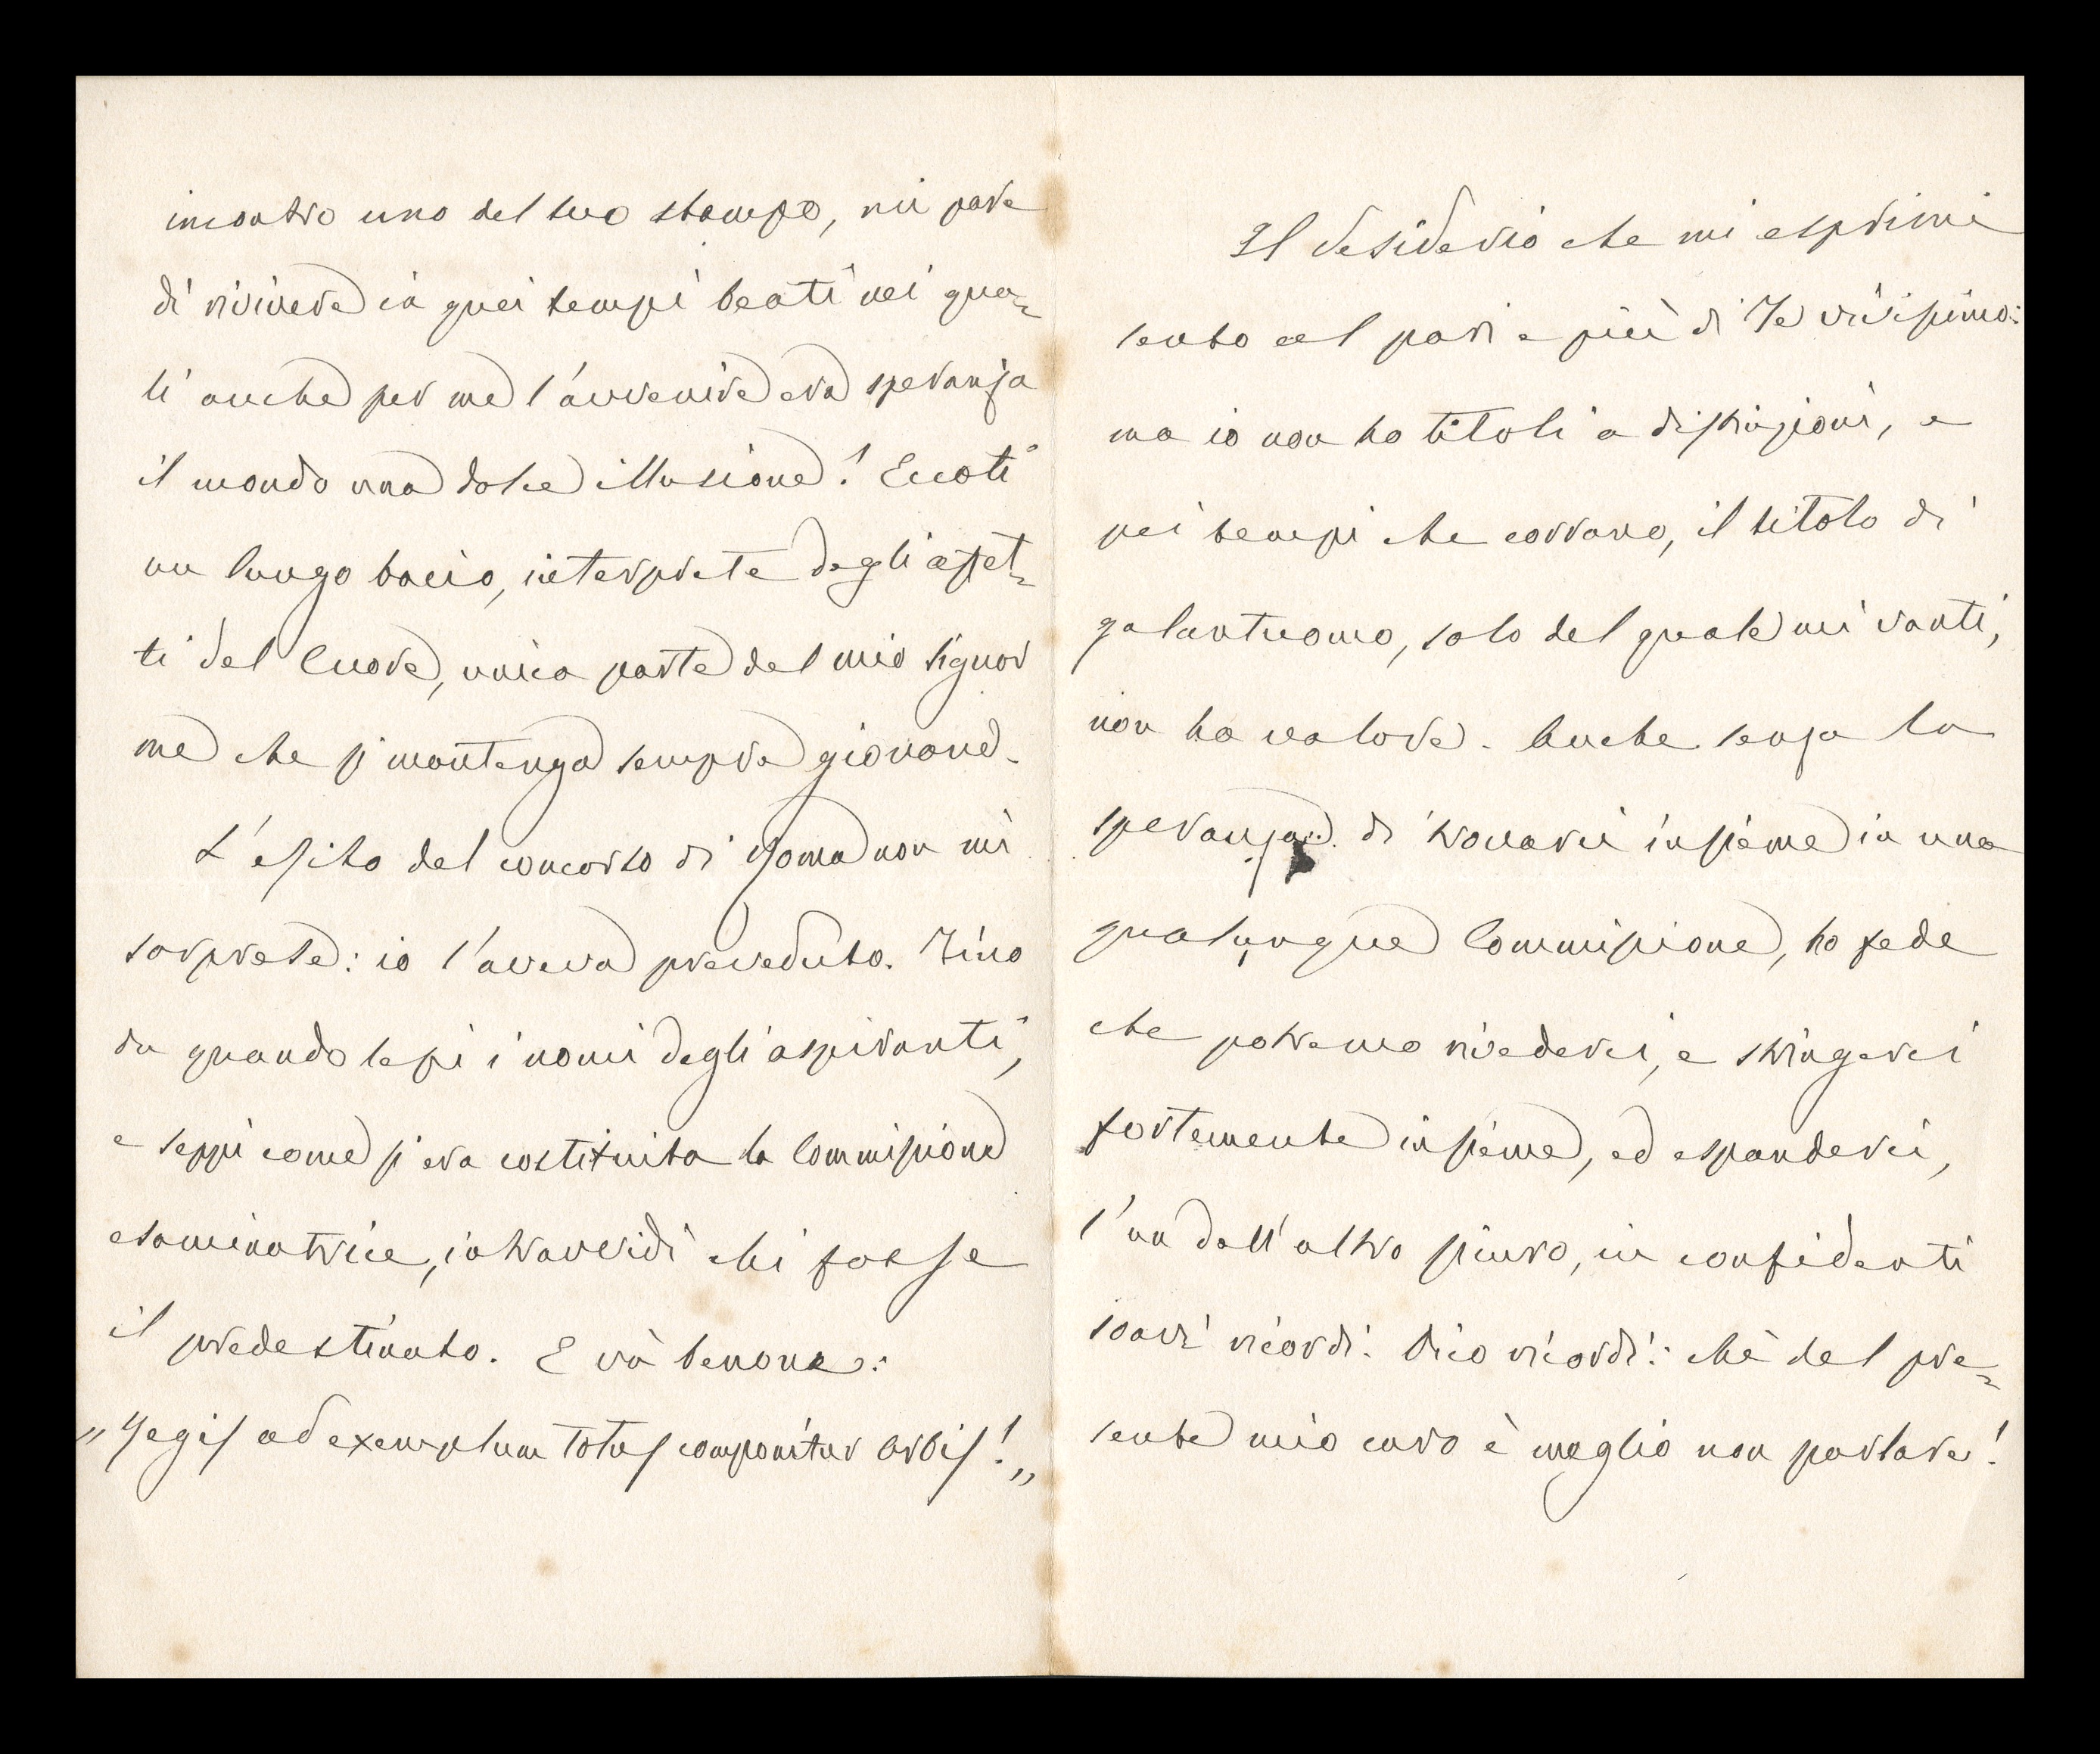 incontro uno del tuo stampo, mi pare
di rivivere in quei tempi beati nei qua=
li anche per me l'avvenire era speranza
il mondo una dolce illusione! Eccoti
un lungo bacio, interprete degli affet=
ti del Cuore, unica parte del mio signor
me che si mantenga sempre giovane.
L'esito del concorso di Roma non mi
sorprese: io l'aveva preveduto. Fino
da quando lessi i nomi degli aspiranti,
e seppi come si era costituita la Commissione
esaminatrice, intravvidi chi fosse
il predestinato. E và benone:
„Regis ad exemplum totus componitur orbis!„
Il desiderio che mi esprimi
sento al pari e più di Te vivissimo:
ma io non ho titoli a distinzioni, e
pei tempi che corrono, il titolo di
galantuomo, solo del quale mi vanti,
non ha valore. Anche senza la
speranza di trovarci insieme in una
qualunque Commissione, ho fede
che potremo rivederci, e stringerci
fortemente insieme, ed espanderci,
l'un dall'altro sicuro, in confidenti
soavi ricordi. Dico ricordi: chè del pre=
sente mio caro è meglio non parlare!